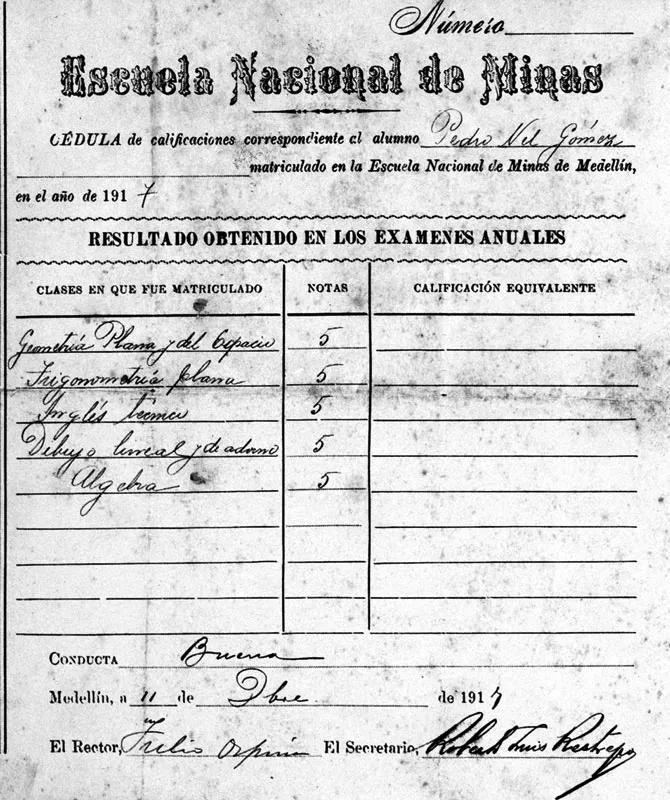 Número
Escuela Nacional de Minas
CÉDULA de calificaciones correspondiente al alumno Pedro Nel Gómez
matriculado en la Escuela Nacional de Minas de Medellín,
en el año de 1917
RESULTADO OBTENIDO EN LOS EXAMENES ANUALES
CLASES EN QUE FUE MATRICULADO NOTAS CALIFICACIÓN EQUIVALENTE
Geometría Plana y del Espacio 5
Trigonometría plana 5
Inglés técnico 5
Dibujo lineal y de adorno 5
Algebra 5
CONDUCTA Buena
Medellín, a 11 de Dbre de 1917
El Rector, Tulio Ospina El Secretario, Robert Luis Restrepo